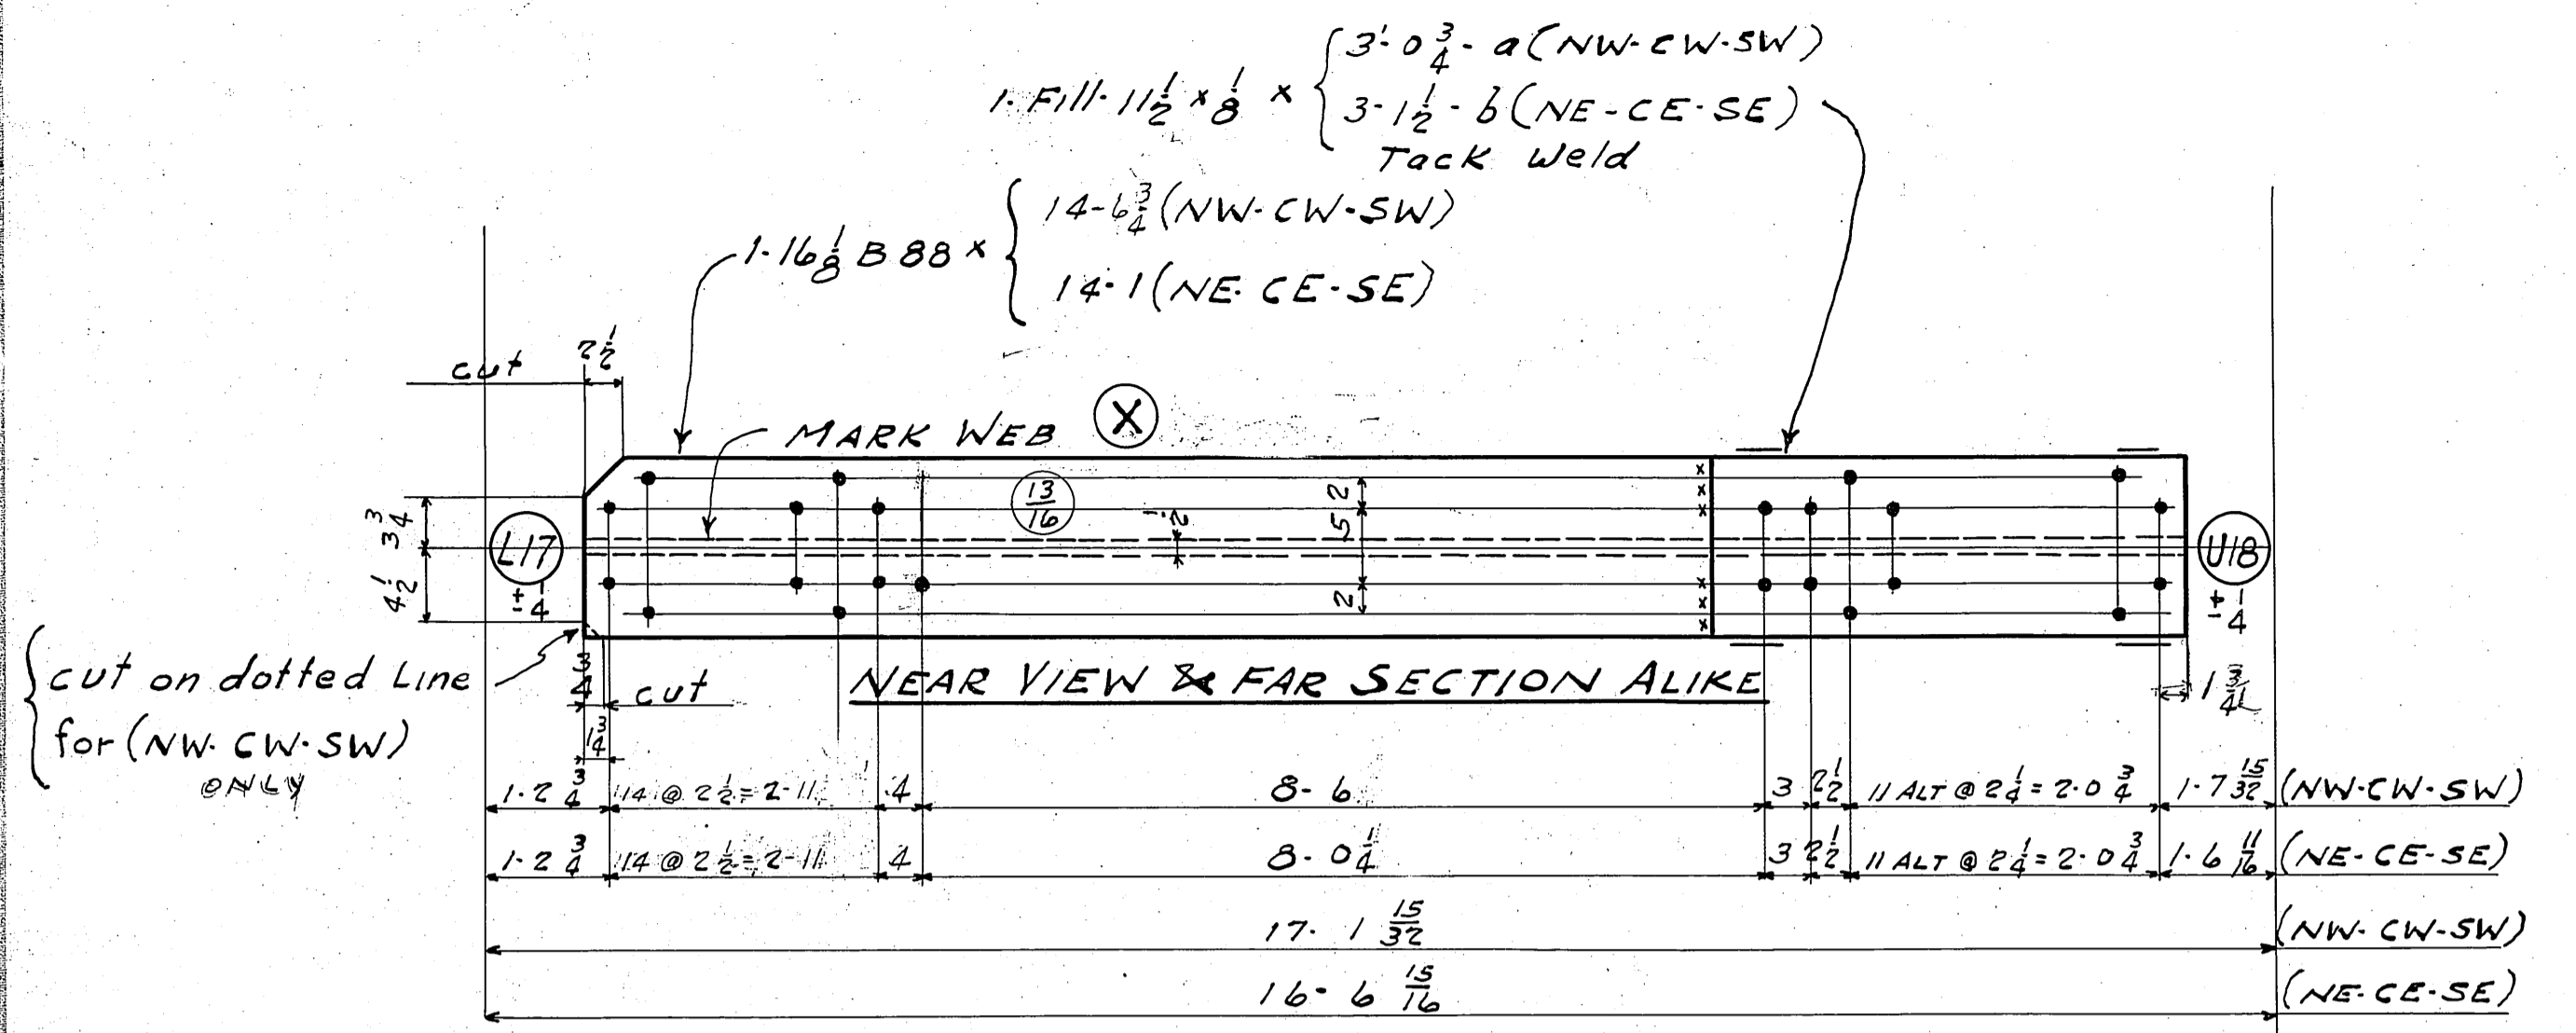 1-Fill-11 1/2 x 1/8 x { 3'-0 3/4 - a (NW-CW-SW)
3-1 1/2 - b (NE-CE-SE)
Tack Weld
1-16 1/8 B 88 x { 14-6 3/4 (NW-CW-SW)
14-1 (NE-CE-SE)
cut
2 1/2
MARK WEB X
13/16
3 3/4
4 1/2
L17
± 1/4
1/2
2
5
2
U18
± 1/4
{ cut on dotted Line
for (NW-CW-SW)
ONLY
3/4 cut
1 3/4
NEAR VIEW & FAR SECTION ALIKE
1 3/4
1-2 3/4 14 @ 2 1/2 = 2-11 4 8-6 3 2 1/2 11 ALT @ 2 1/4 = 2-0 3/4 1-7 15/32 (NW-CW-SW)
1-2 3/4 14 @ 2 1/2 = 2-11 4 8-0 1/4 3 2 1/2 11 ALT @ 2 1/4 = 2-0 3/4 1-6 11/16 (NE-CE-SE)
17-1 15/32 (NW-CW-SW)
16-6 15/16 (NE-CE-SE)